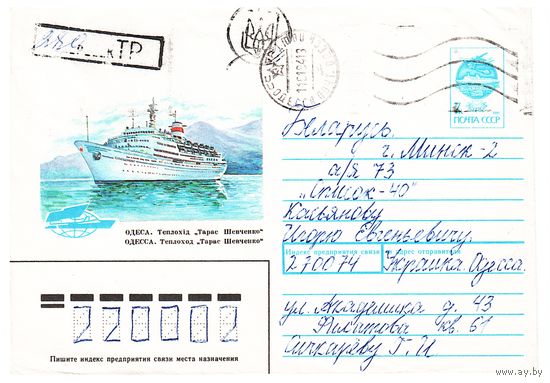 ТР
ПОЧТА СССР
Беларусь
г. Минск-2
а/я 73
„Списон-40"
Касьянову
Игорю Евгеньевичу.
ОДЕСА. Теплохід „Тарас Шевченко"
ОДЕССА. Теплоход „Тарас Шевченко"
Индекс предприятия связи и адрес отправителя
270074 Украина. Одесса.
ул. Академика д. 43
Филатова кв. 61
Г. И
220002
Пишите индекс предприятия связи места назначения
www.ay.by